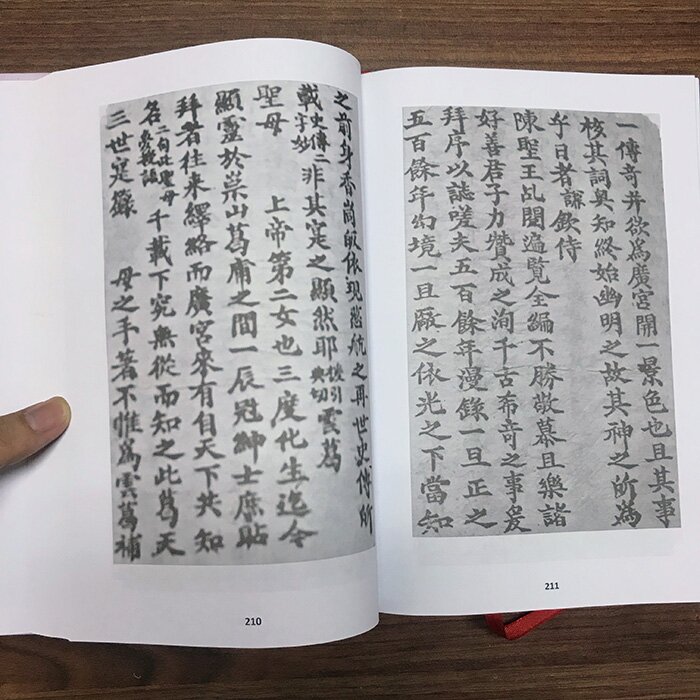 之前身香崗皈依現慈航之再世史傳所
載史傳二字妙非其寔之顯然耶援引典切雲葛
聖母 上帝第二女也三度化生迄今
顯靈於崇山葛庸之間一辰冠紳士庶貼
拜者往來繹絡而廣宮來有自天下共知
名二句此聖母千載下究無從而知之此葛天
三世寔錄 母之手著不惟為雲葛補
210
一傳奇并欲為廣宮開一景色也且其事
核其詞典知終始幽明之故其神之所為
乎日者謙欽侍
陳聖王乩閣遍覽全編不勝敬慕且樂諸
好善君子力贊成之洵千古希奇之事爰
拜序以誌嗟夫五百餘年漫錄一旦正之
五百餘年幻境一旦厰之依光之下當知
211